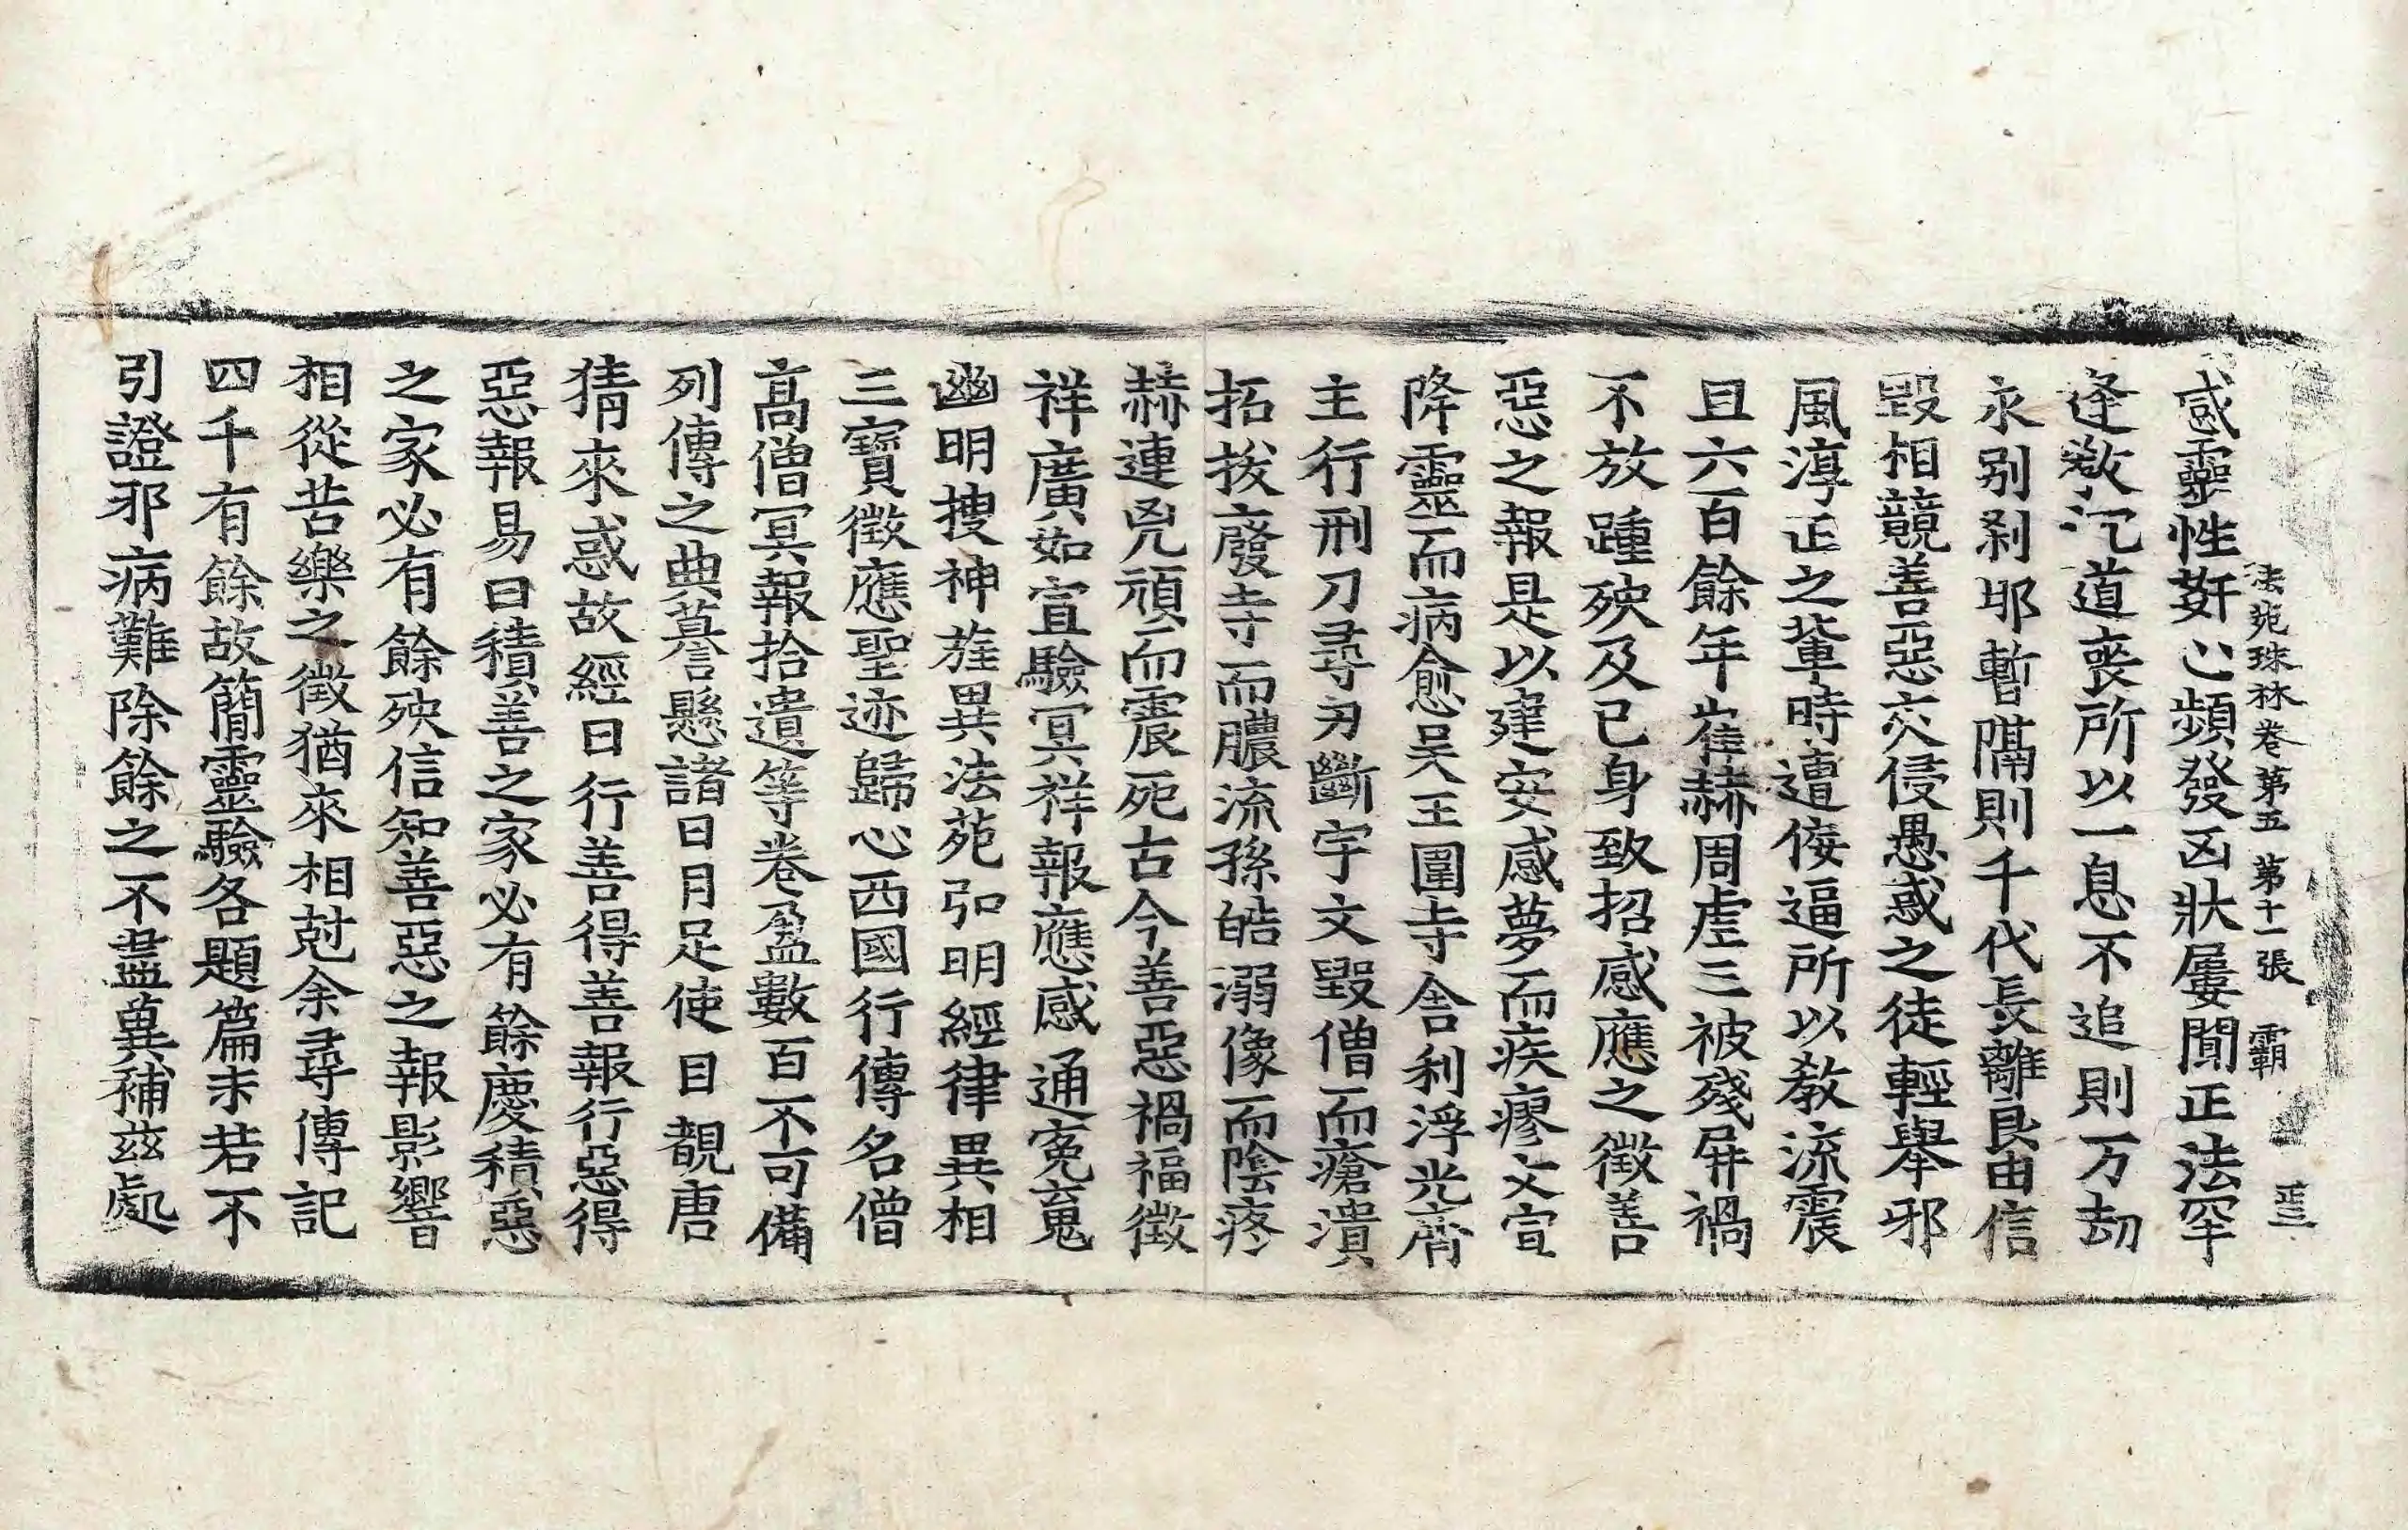 法苑珠林卷第五 第十一張 霸
惑靈性姧心頻發凶狀屢聞正法罕
逢教沉道喪所以一息不追則万劫
永別刹那暫隔則千代長離良由信
毀相競善惡交侵愚惑之徒輕舉邪
風淳正之輩時遭佞逼所以教流震
旦六百餘年崔赫周虐三被殘屏禍
不放踵殃及己身致招感應之徵善
惡之報是以建安感夢而疾瘳文宣
降靈而病愈吳王圍寺舍利浮光齊
主行刑刀尋刃斷宇文毀僧而瘡潰
拓拔廢寺而膿流孫皓溺像而陰疼
赫連兇頑而震死古今善惡禍福徵
祥廣如宣驗冥祥報應感通寃䰟
幽明搜神旌異法苑弘明經律異相
三寶徵應聖迹歸心西國行傳名僧
高僧冥報拾遺等卷盈數百不可備
列傳之典謩懸諸日月足使目覩唐
猜來惑故經曰行善得善報行惡得
惡報易曰積善之家必有餘慶積惡
之家必有餘殃信知善惡之報影響
相從苦樂之徵猶來相剋余尋傳記
四千有餘故簡靈驗各題篇末若不
引證邪病難除餘之不盡冀補茲處